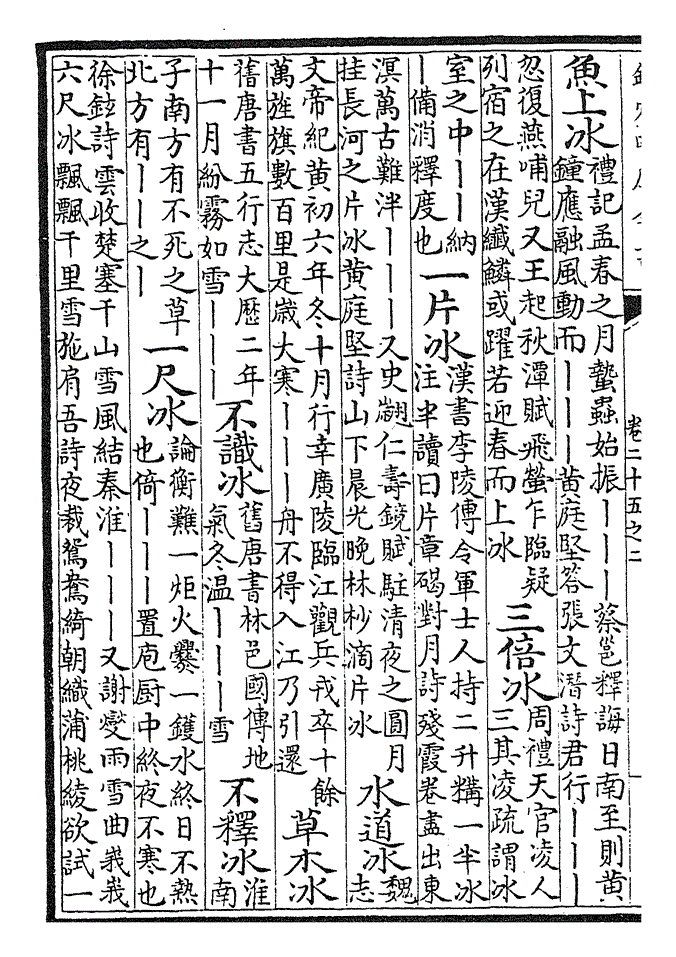 卷二十五之二
魚上冰 禮記孟春之月蟄蟲始振｜｜｜蔡邕釋誨日南至則黄
鐘應融風動而｜｜｜黄庭堅答張文潛詩君行｜｜｜
忽復燕哺兒又王起秋潭賦飛螢乍臨疑
列宿之在漢纖鱗或躍若迎春而上冰
三倍冰 周禮天官凌人
三其凌疏謂冰
室之中｜｜納
｜備消釋度也
一片冰 漢書李陵傳令軍士人持二升糒一半冰
注半讀曰片章碣對月詩殘霞卷盡出東
溟萬古難泮｜｜｜又史翽仁壽鏡賦駐清夜之圓月
挂長河之片冰黄庭堅詩山下晨光晚林杪滴片冰
水道冰 魏
志
文帝紀黄初六年冬十月行幸廣陵臨江觀兵戎卒十餘
萬旌旗數百里是歲大寒｜｜｜舟不得入江乃引還
草木冰
舊唐書五行志大歷二年
十一月紛霧如雪｜｜｜
不識冰 舊唐書林邑國傳地
氣冬温｜｜｜雪
不釋冰 淮
南
子南方有不死之草
北方有｜｜之｜
一尺冰 論衡難一炬火爨一鑊水終日不熱
也倚｜｜｜置庖厨中終夜不寒也
徐鉉詩雲收楚塞千山雪風結秦淮｜｜｜又謝燮雨雪曲峩峩
六尺冰飄飄千里雪施肩吾詩夜裁鴛鴦綺朝織蒲桃綾欲試一